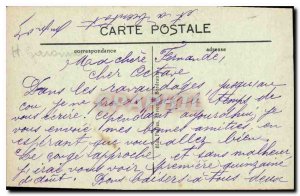 CARTE POSTALE
correspondance
adresse
Ma chère Fernande,
cher Octave
Dans les ravaudages jusqu'au
cou, je ne temps de
vous écrire. Cependant aujourd'hui je
vous envoie mes bonnes amitiés, en
espérant que vous allez bien.
Le congé approche et sans malheur
j'irai vous voir première quinzaine
d'août. Bons baisers à tous deux